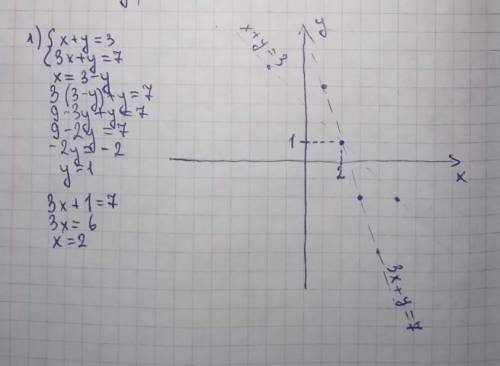 1) { x+y=3
3x+y=7
x=3-y
3(3-y)+y=7
9-3y+y=7
9-2y=7
-2y=-2
y=1
3x+1=7
3x=6
x=2
y
x+y=3
1
2
x
3x+y=7